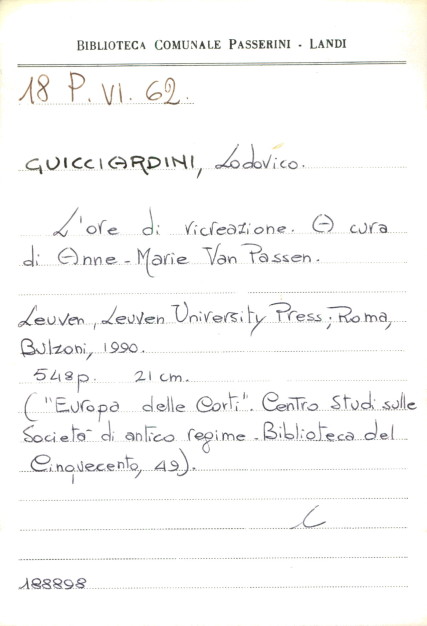 BIBLIOTECA COMUNALE PASSERINI - LANDI
18 P. VI. 62.
GUICCIARDINI, Lodovico.
L'ore di ricreazione. A cura
di Anne-Marie Van Passen.
Leuven, Leuven University Press; Roma,
Bulzoni, 1990.
548 p. 21 cm.
("Europa delle Corti". Centro Studi sulle
Società di antico regime. Biblioteca del
Cinquecento, 49).
L
188898